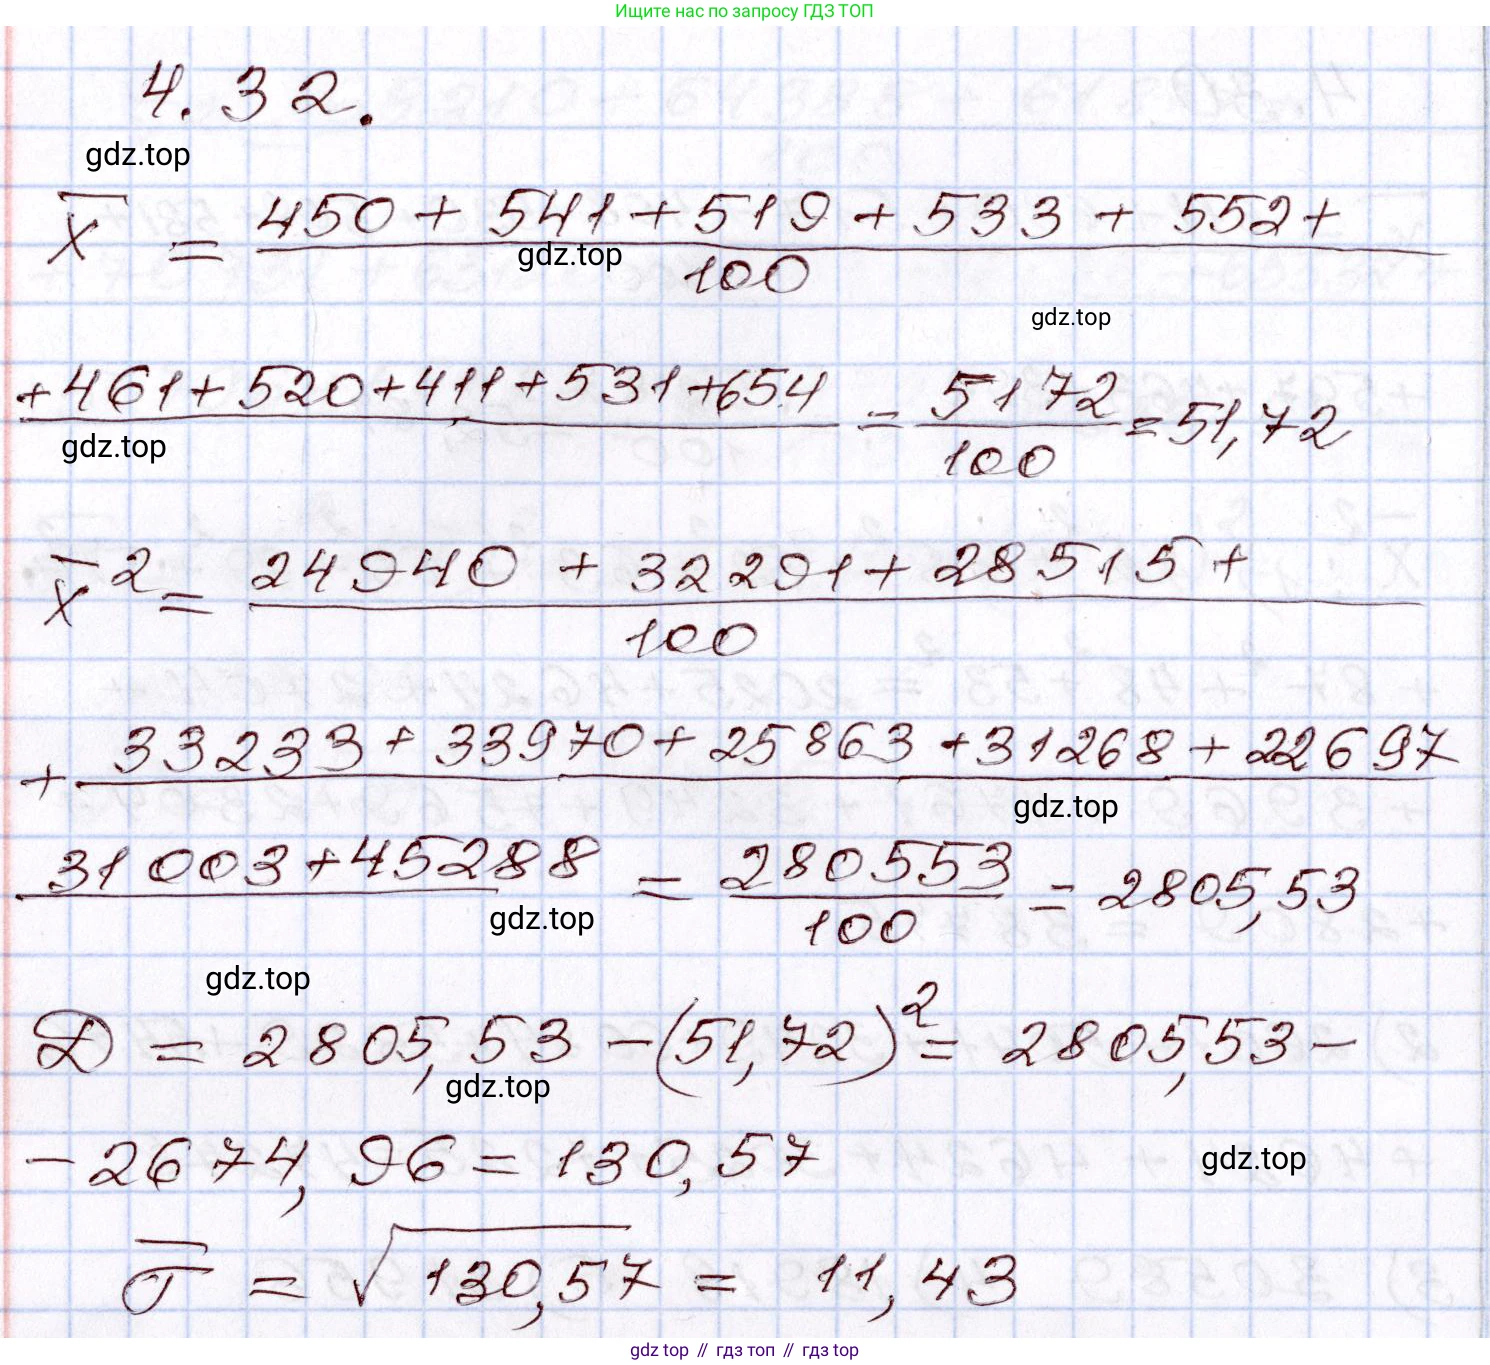 Ищите нас по запросу ГДЗ ТОП
4.32.
gdz.top
x̄ = 450 + 541 + 519 + 533 + 552 +
gdz.top
100
gdz.top
+ 461 + 520 + 411 + 531 + 654 = 5172 = 51,72
gdz.top
100
x̄² = 24940 + 32291 + 28515 +
100
+ 33233 + 33970 + 25863 + 31268 + 22697
gdz.top
31003 + 45288 = 280553 = 2805,53
gdz.top
100
gdz.top
D = 2805,53 - (51,72)² = 2805,53 -
gdz.top
- 2674,96 = 130,57
gdz.top
σ̄ = √130,57 = 11,43
gdz top // гдз топ // гдз top